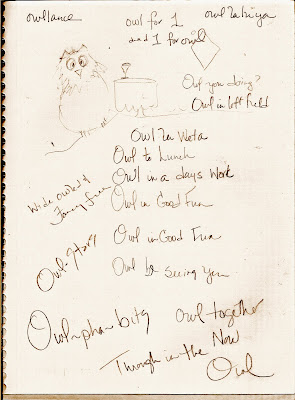 owlance
owl for 1
and 1 for owl
owl
Owl you doing?
Owl in left field
Owl
Owl to Lunch
Owl in a days Work
Owl in Good Fun
Wide owled &
Fancy Free
Owl in Good Fun
Owl be seeing You
owl together
Through in the Now
Owl